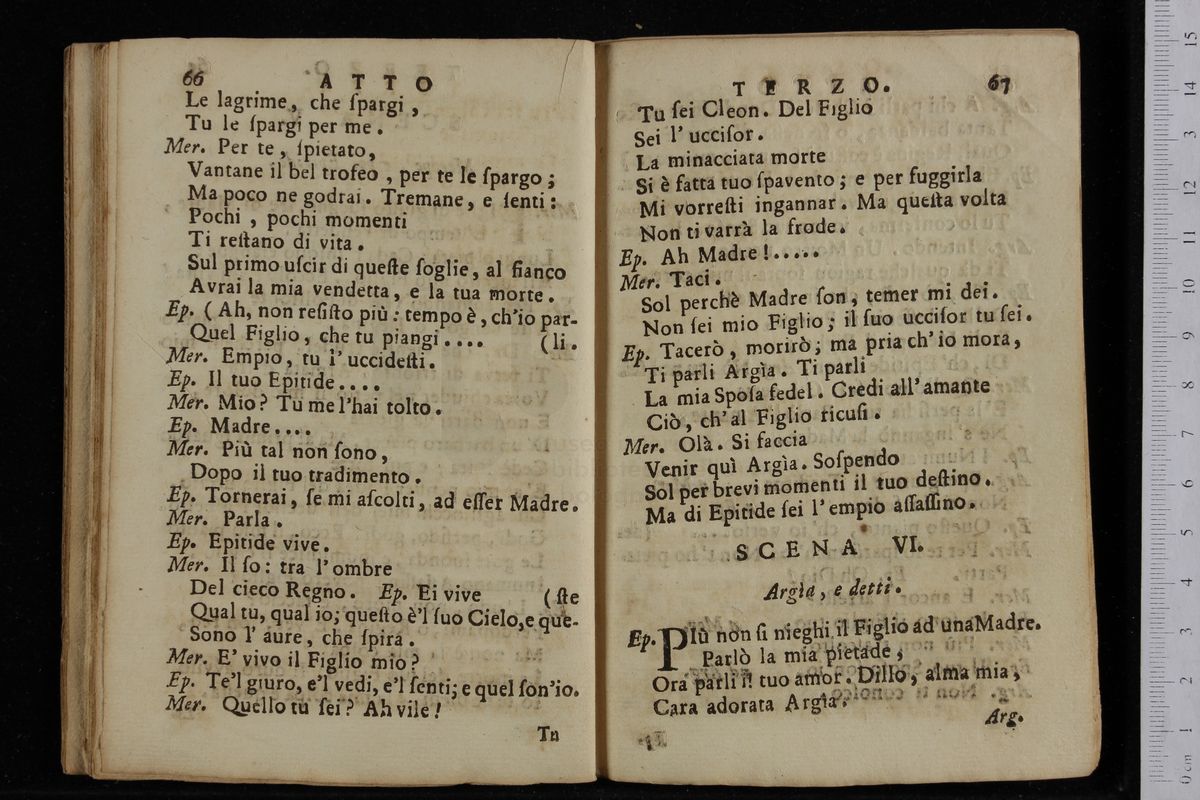 66 ATTO
Le lagrime, che ſpargi,
Tu le ſpargi per me.
Mer. Per te, ſpietato,
Vantane il bel trofeo, per te le ſpargo;
Ma poco ne godrai. Tremane, e ſenti:
Pochi, pochi momenti
Ti reſtano di vita.
Sul primo uſcir di queſte ſoglie, al fianco
Avrai la mia vendetta, e la tua morte.
Ep. (Ah, non reſiſto più: tempo è, ch'io par-
Quel Figlio, che tu piangi.... (li.
Mer. Empio, tu l'uccideſti.
Ep. Il tuo Epitide....
Mer. Mio? Tu me l'hai tolto.
Ep. Madre....
Mer. Più tal non ſono,
Dopo il tuo tradimento.
Ep. Tornerai, ſe mi aſcolti, ad eſſer Madre.
Mer. Parla.
Ep. Epitide vive.
Mer. Il ſo: tra l'ombre
Del cieco Regno. Ep. Ei vive (ſte
Qual tu, qual io; queſto è'l ſuo Cielo, e que-
Sono l'aure, che ſpira.
Mer. E' vivo il Figlio mio?
Ep. Te'l giuro, e'l vedi, e'l ſenti; e quel ſon'io.
Mer. Quello tu ſei? Ah vile!
Tu
TERZO. 67
Tu ſei Cleon. Del Figlio
Sei l'ucciſor.
La minacciata morte
Si è fatta tuo ſpavento; e per fuggirla
Mi vorreſti ingannar. Ma queſta volta
Non ti varrà la frode.
Ep. Ah Madre!.....
Mer. Taci.
Sol perchè Madre ſon, temer mi dei.
Non ſei mio Figlio; il ſuo ucciſor tu ſei.
Ep. Tacerò, morirò; ma pria ch'io mora,
Ti parli Argìa. Ti parli
La mia Spoſa fedel. Credi all'amante
Ciò, ch'al Figlio ricuſi.
Mer. Olà. Si faccia
Venir quì Argìa. Soſpendo
Sol per brevi momenti il tuo deſtino.
Ma di Epitide ſei l'empio aſſaſſino.
SCENA VI.
Argìa, e detti.
Ep. PIù non ſi nieghi il Figlio ad una Madre.
Parlò la mia pietade;
Ora parli il tuo amor. Dillo, alma mia,
Cara adorata Argìa.
Arg.